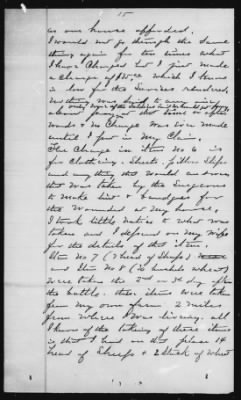 15
as our house afforded.
I would not go through the same
thing again for ten times what
I have charged but I just made
a charge of which I know
is low for the services rendered.
Nothing was said to any one
about payment at the time or after
wards & no charge was ever made
until I put in my claim.
The charge in item No 6 is
for clothing. Sheets. pillow slips
and any thing that would answer
that was taken by the Surgeons
to make lint & bandages for
the wounded at my house,
I took little notice to what was
taken and I depend on my wife
for the details of this item.
Item No 7 (7 head of Sheep)
and Item No 8 (20 bushels wheat)
were taken the 2nd or 3d day after
the battle. these items were taken
from my own farm 2 miles
from where I was living. all
I know of the taking of these items
is that I had on this place 14
head of Sheep & 2 Stack of wheat